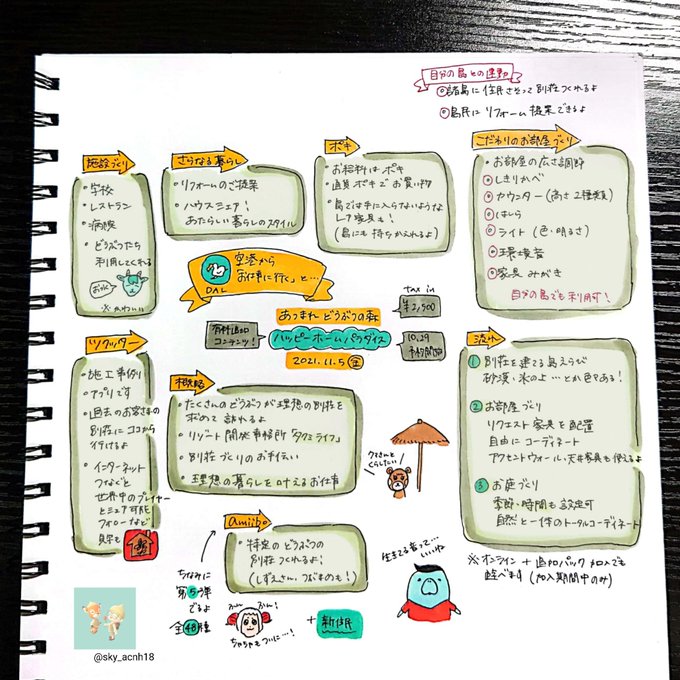 自分の島との連動
◎諸島に住民さそって別荘つくれるよ
◎島民にリフォーム提案できるよ
施設づくり
・学校
・レストラン
・病院
・どうぶつたち
利用してくれる
※かわいい
さらなる暮らし
・リフォームのご提案
・ハウスシェア!
あたらしい暮らしのスタイル
ポキ
・お給料はポキ
・直貨ポキでお買い物
・島では手に入らないような
レア家具も!
(島にも持ちかえれるよ)
こだわりのお部屋づくり
・お部屋の広さ調節
◎しきりかべ
◎カウンター(高さ2種類)
◎はしら
◎ライト(色・明るさ)
◎環境音
◎家具みがき
自分の島でも利用可!
空港から
「お仕事に行く」と…
DAL
tax in
¥2,500
あつまれ どうぶつの森
有料追加
コンテンツ!
ハッピーホームパラダイス
10.29
予約開始
2021.11.5(金)
ツクッター
・施工事例
・アプリです
・過去のお客さまの
別荘にココから
行けるよ
・インターネット
つなぐと
世界中のプレイヤー
とシェア可能
フォローなど
見学も
概略
・たくさんのどうぶつが理想の別荘を
求めて訪れるよ
・リゾート開発事務所「タクミライフ」
・別荘づくりのお手伝い
・理想の暮らしを叶えるお仕事
クマさんと
くらしたい
流れ
1 別荘を建てる島えらび
砂漠・氷のよ…とか色々ある!
2 お部屋づくり
リクエスト家具を配置
自由にコーディネート
アクセントウォール・天井家具も使えるよ
3 お庭づくり
季節・時間も設定可
自然と一体のトータルコーディネート
※オンライン+追加パック加入でも
遊べます(加入期間中のみ)
amiibo
・特定のどうぶつの
別荘つくれるよ!
(しずえさん、つぶまめも!)
ちなみに
第5弾
でるよ
全48種
ちゃちゃもついに…!
+新住民
生きてる音って…
いいね
@sky_acnh18